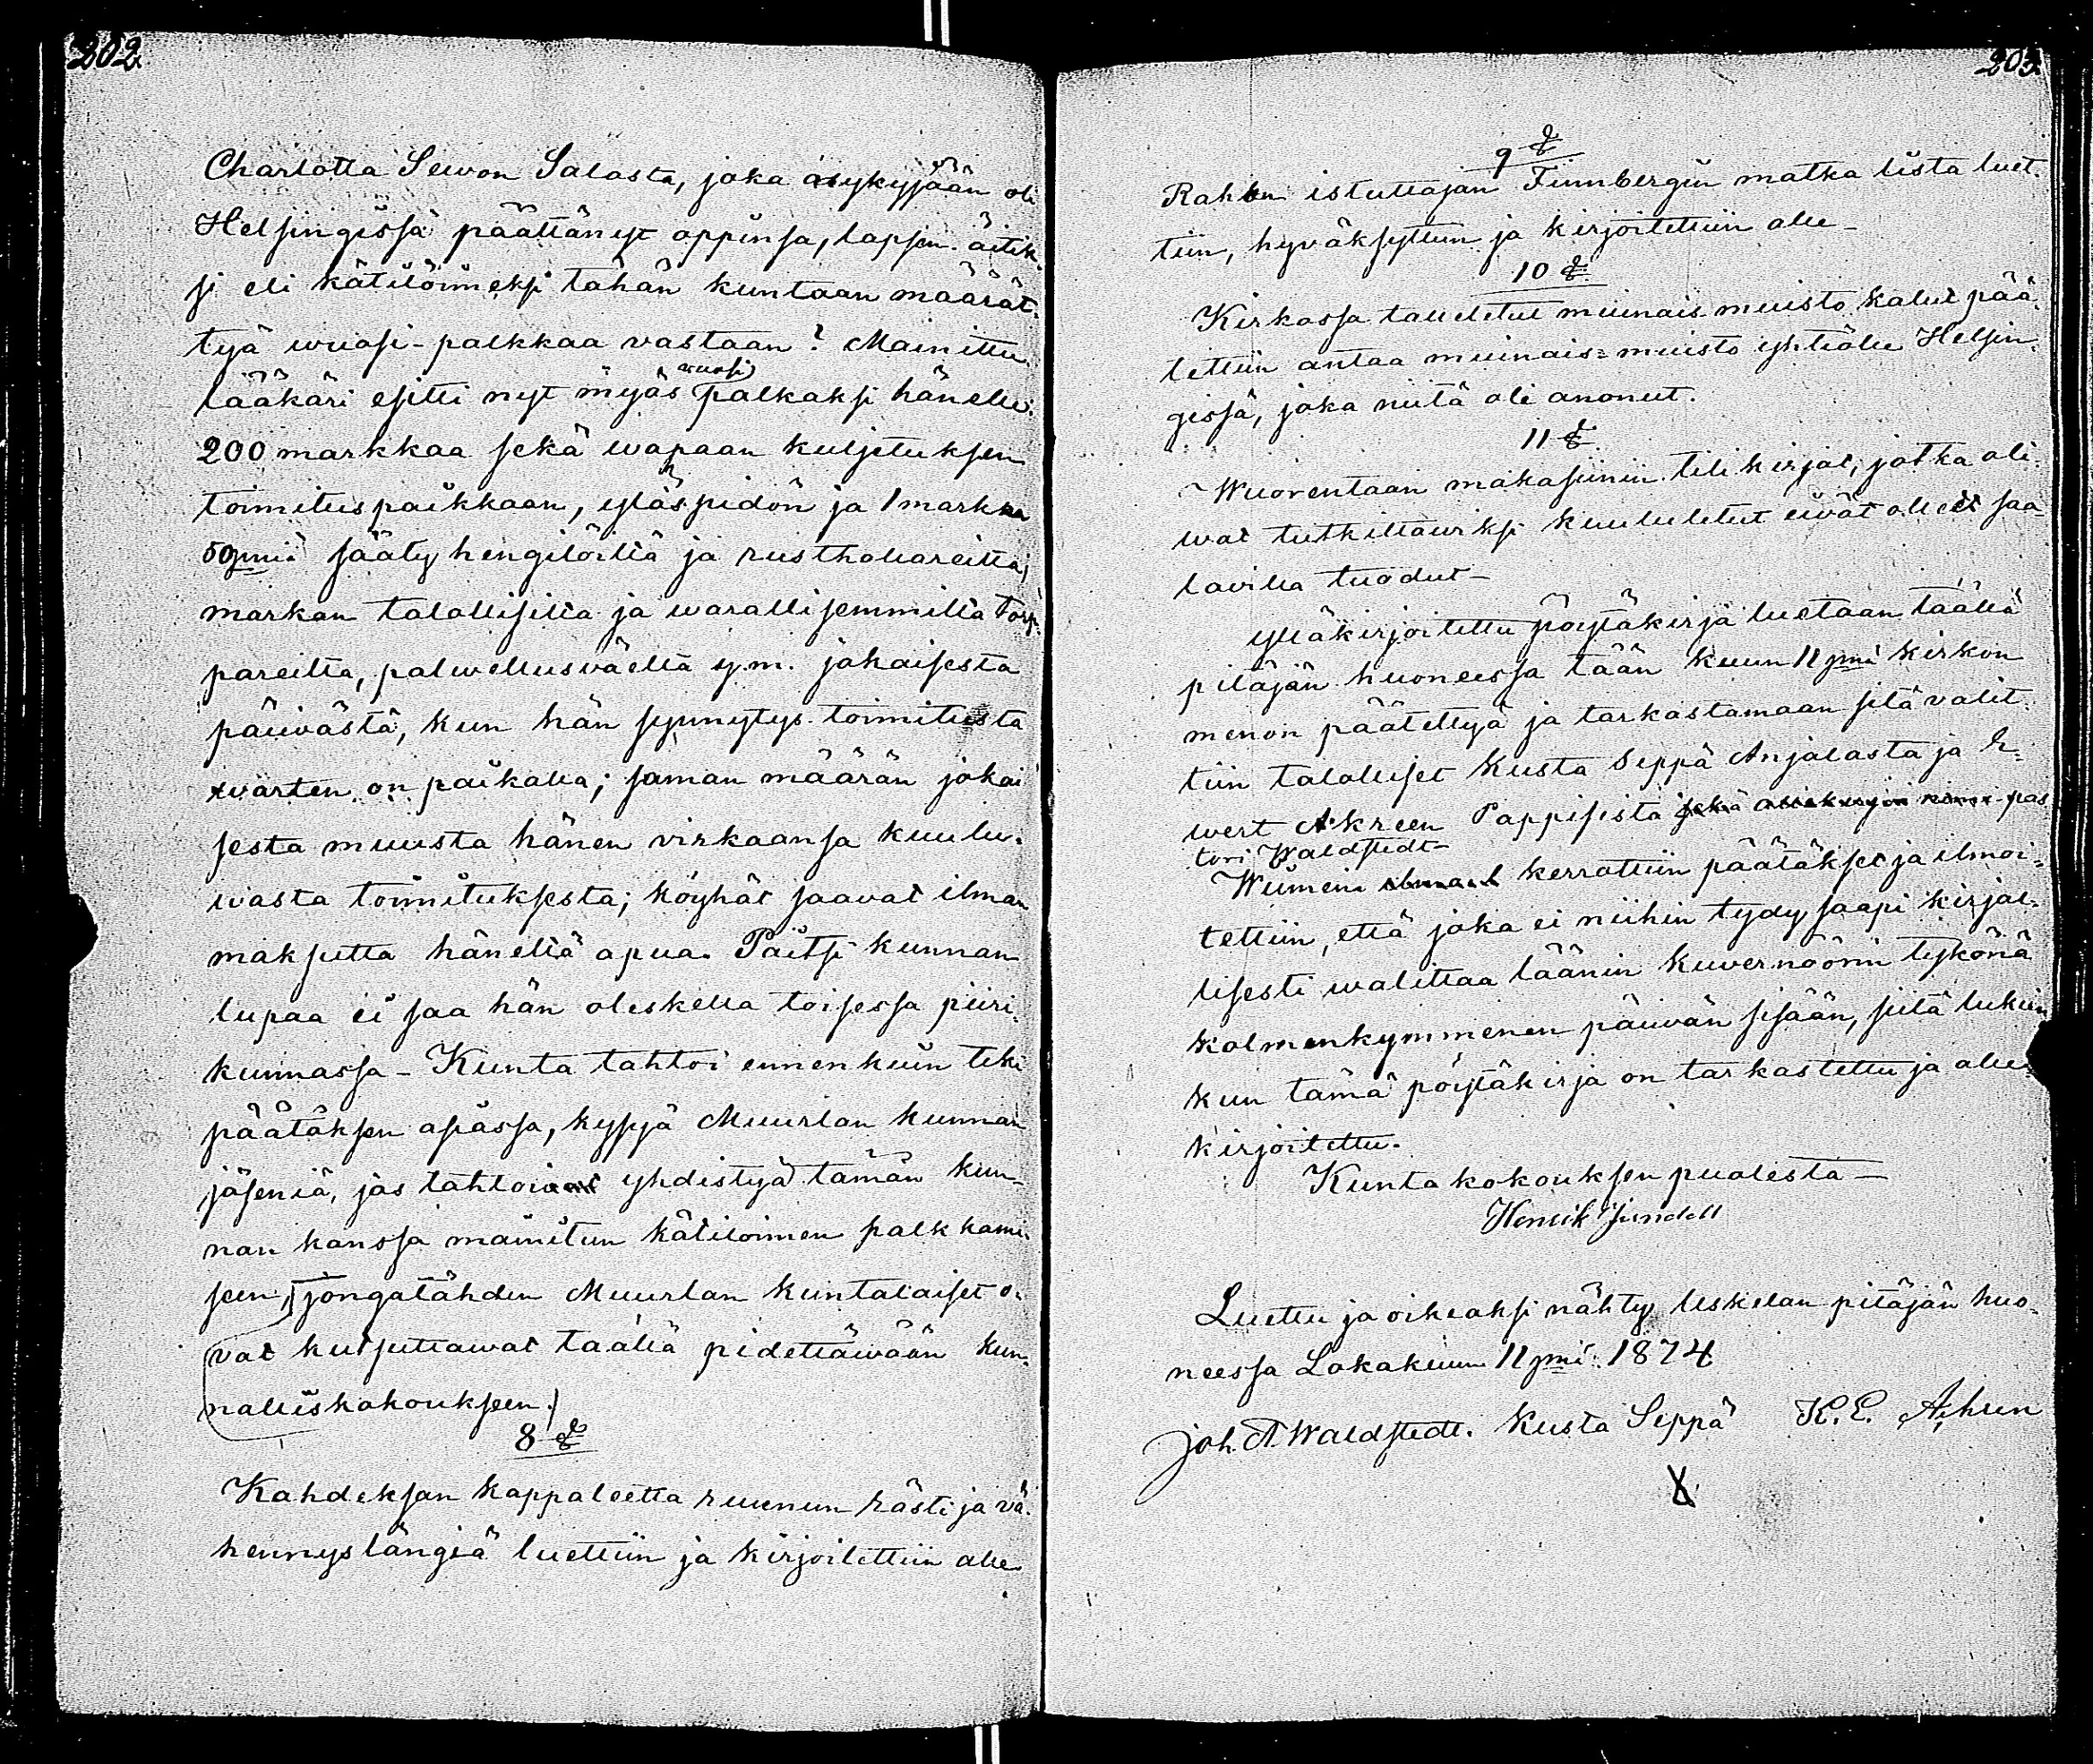 202.
Charlotta Sewon Salosta, joka äsykyjään oli
Helsingissä päättänyt oppinsa, lapsen-äitik-
si eli kätilöimeksi tähän kuntaan määrät-
tyä wuosi-palkkaa vastaan? Mainittu
lääkäri esitti nyt myös wuosi palkaksi hänelle.
200 markkaa sekä wapaan kuljetuksen
toimituspaikkaan, ylöspidon ja 1 markka
50 pniä sääty hengilöiltä ja rusthollareilta,
markan talollisilta ja warallisemmilta torp-
pareilta, palwellusväeltä y.m. jokaisesta
päivästä, kun hän synnytys-toimitusta
warten on paikalla; saman määrän jokai
sesta muusta hänen virkaansa kuulu-
wasta toimituksesta; köyhät saavat ilman
maksutta häneltä apua. Paitsi kunnan
lupaa ei saa hän oleskella toisessa piiri-
kunnassa - Kunta tahtoi ennenkuin teki
päätöksen asiassa, kysyä Muurlan kunnan
jäseniä, jos tahtoivat yhdistyä tämän kun-
nan kanssa mainitun kätilöimen palkkami-
seen, jongatähden Muurlan kuntalaiset o-
vat kutsuttawat täällä pidettäwään kun-
nalliskokoukseen.
8 §
Kahdeksan kappaletta ruunun rästi ja vä-
hennyslängiä luettiin ja kirjoitettiin alle
203.
9 §
Rokon istuttajan Finnbergin matka lista luet-
tiin, hyväksyttiin ja kirjoitettiin alle-
10 §
Kirkossa talletetut muinais-muisto kalut pää-
tettiin antaa muinais-muisto yhtiölle Helsin-
gissä, joka niitä oli anonut.
11 §
Wuorentaan makasiinin tilikirjat, jotka oli-
wat tutkittawiksi kuulutetut eiwät olleet saa-
tavilla tuodut-
Ylläkirjoitettu pöytäkirja luetaan täällä
pitäjän huoneessa tään kuun 11 pnä kirkon
menon päätettyä ja tarkastamaan sitä valit-
tiin talolliset Kusta Seppä Anjalasta ja E-
wert Akreen Pappisista sekä pas
tori Waldstedt-
Wiimein kerrottiin päätökset ja ilmoi-
tettiin, että joka ei niihin tydy, saapi kirjal-
lisesti walittaa läänin kuvernöörin tykönä
kolmenkymmenen päiwän sisään, siitä lukein
kun tämä pöytäkirja on tarkastettu ja alle-
kirjoitettu.
Kunta kokouksen puolesta -
Henrik Jundell
Luettu ja oikeaksi nähty Uskelan pitäjän huo-
neessa Lokakuun 11 pnä 1874
Joh. A Waldstedt. Kusta Seppä K. E. Åhren